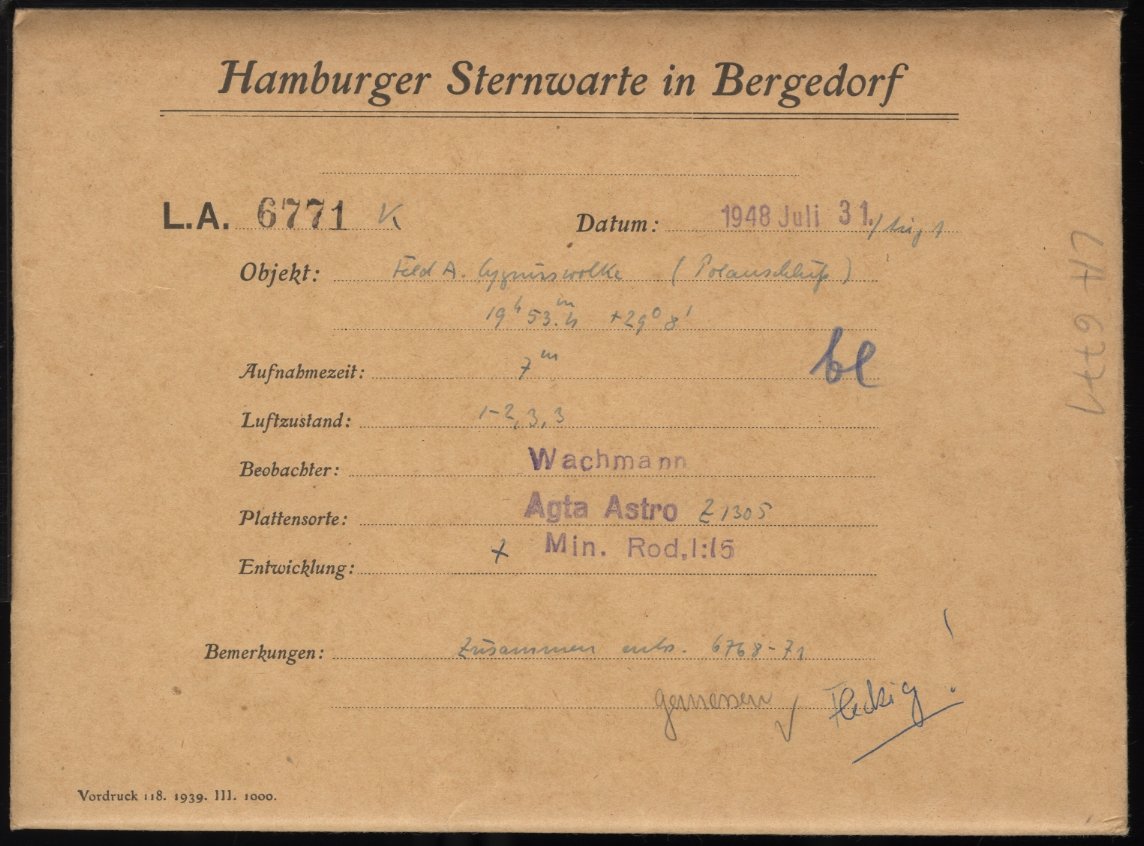 Hamburger Sternwarte in Bergedorf
L.A. 6771 K
Datum: 1948 Juli 31./Aug 1
Objekt: Feld A. Cygnuswolke (Polanschluß)
19h 53.m4 +29° 8'
Aufnahmezeit: 7m
bl
Luftzustand: 1-2, 3, 3
Beobachter: Wachmann
Plattensorte: Agfa Astro Z1305
Entwicklung: + Min. Rod, 1:15
Bemerkungen: Zusammen entw. 6768-71
gemessen √ Fleckig.
Vordruck 118. 1939. III. 1000.
LA 6771